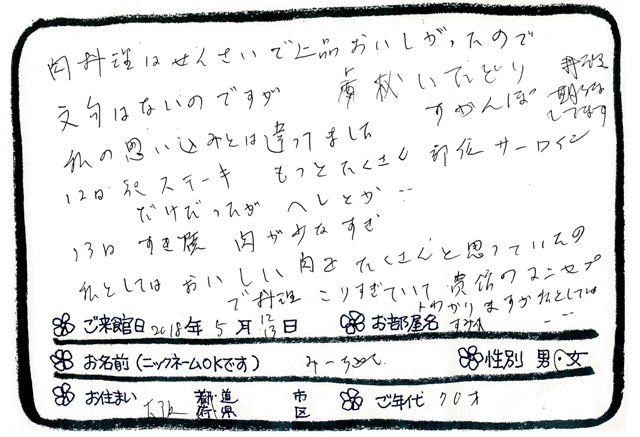 肉料理はせんさいで上品おいしかったので
文句はないのですが いたどり
すかんぽ
期待
してます
私の思い込みとは違ってました
12日 ステーキ もっとたくさん 部位 サーロイン
だけだったが ヘレとか…
13日 すき焼 肉が少なすぎ
私としては おいしい肉を たくさんと思っていたの
で料理 こりすぎていて 貴館のコンセプ
トわかりますが私としては
ご来館日 2018年 5月 12 13日 お部屋名
お名前(ニックネームOKです) みーちゃん 性別 男・女
お住まい 大阪 都・道 府・県 市 区 ご年代 70才